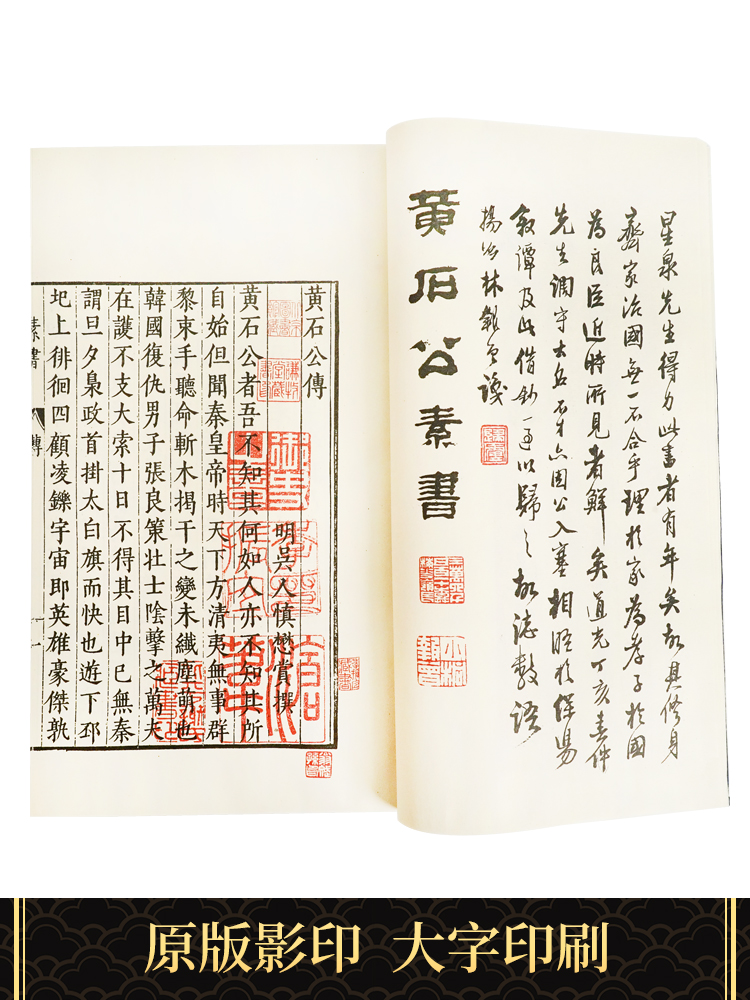 星泉先生得力此書者有年矣故其修身
齊家治國無一不合乎理於家為孝子於國
為良臣近時所見者鮮矣道光丁亥春仲
先生調守大名不才亦因公入塞相晤於保陽
敘譚及此借鈔一通以歸之故誌數語
林謹
黄石公素書
黄石公傳
明吳人慎懋賞撰
黄石公者吾不知其何如人亦不知其所
自始但聞秦皇帝時天下方清夷無事群
黎束手聽命斬木揭干之變未纖塵萌也
韓國復仇男子張良策壯士陰擊之萬夫
在護不支大索十日不得其目中已無秦
謂旦夕梟政首掛太白旗而快也遊下邳
圯上徘徊四顧凌鑠宇宙即英雄豪傑孰
素書 傳 一
原版影印 大字印刷